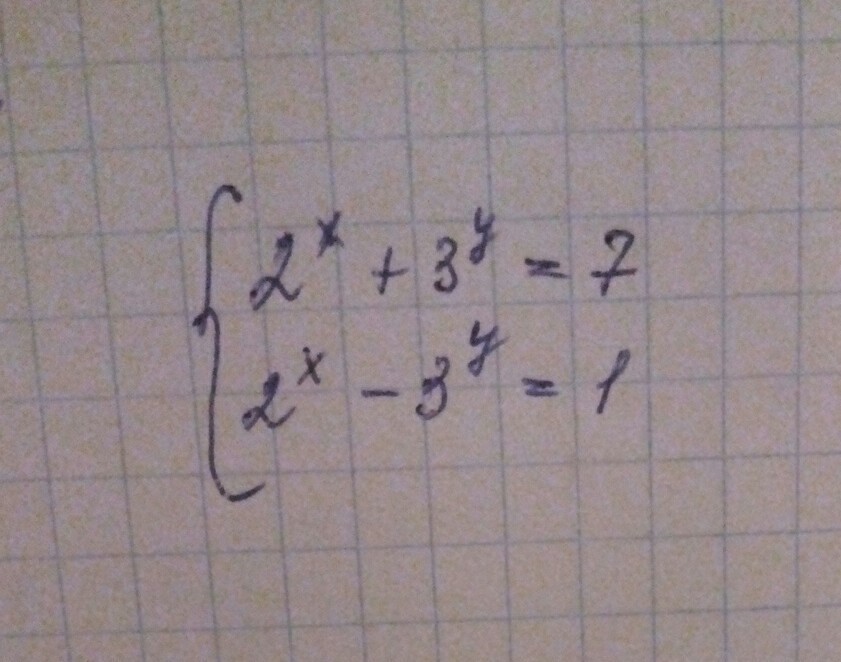 2^x + 3^y = 7
2^x - 3^y = 1